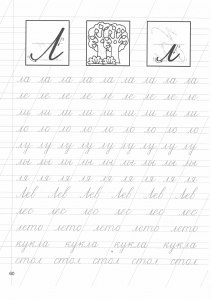 Л л
ла ла ла ла ла ла ла ла ла
ле ле ле ле ле ле ле ле ле
ли ли ли ли ли ли ли ли ли
ло ло ло ло ло ло ло ло ло
лу лу лу лу лу лу лу лу лу
лы лы лы лы лы лы лы лы лы
ля ля ля ля ля ля ля ля ля
Лев Лев Лев Лев Лев Лев
лето лето лето лето лето
кукла кукла кукла кукла
стол стол стол стол стол
60